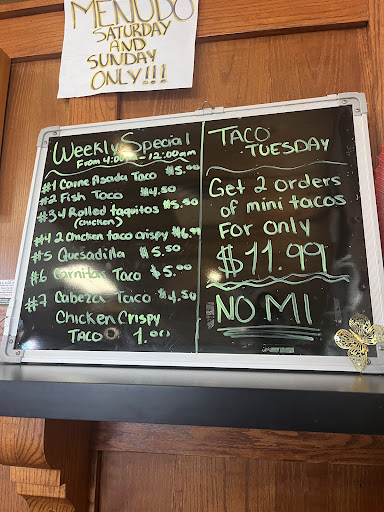 MENUDO
SATURDAY
AND
SUNDAY
ONLY!!!
Weekly Special
From 4:00pm - 12:00am
#1 Carne Asada Taco $5.00
#2 Fish Taco $4.50
#3 4 Rolled taquitos $5.50
(Chicken)
#4 2 Chicken taco crispy $6.99
#5 Quesadilla $5.50
#6 Carnitas Taco $5.00
#7 Cabeza Taco $4.50
Chicken Crispy
TACO 1.00
TACO
TUESDAY
Get 2 orders
of mini tacos
For only
$11.99
NO MI